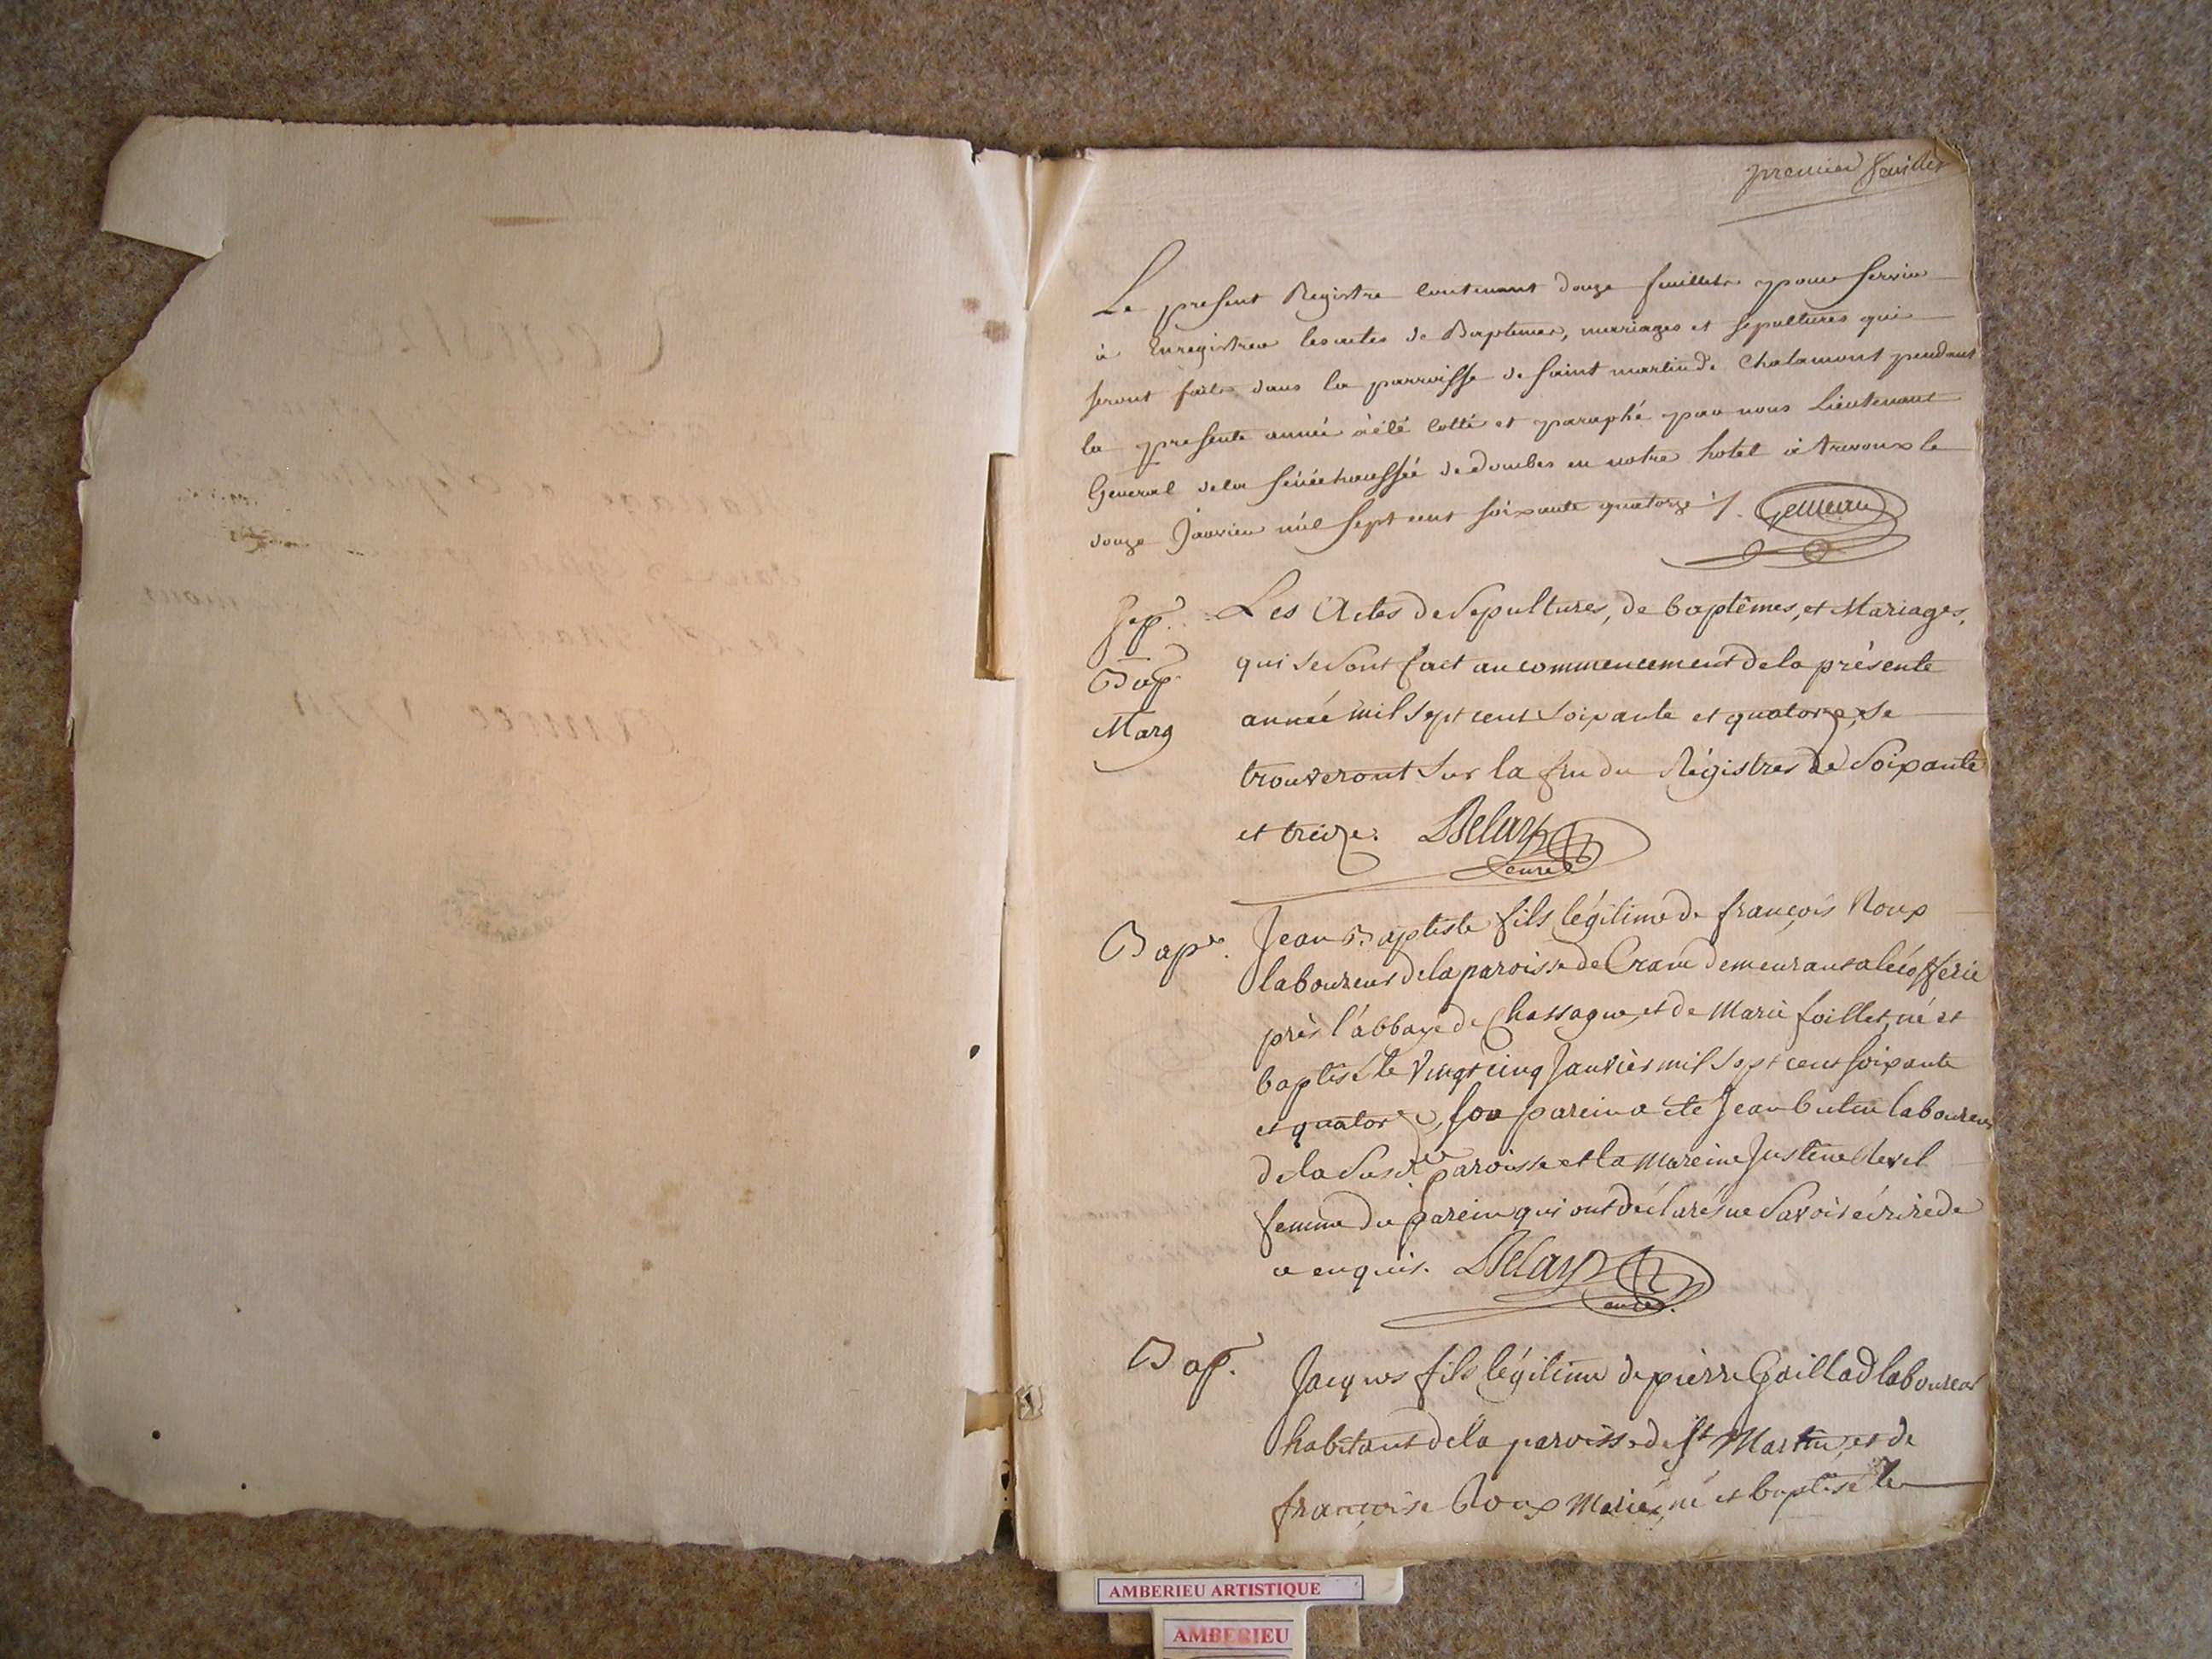 premier feuillet
Le present Registre contenant douze feuillets pour servir
à Enregistrer les actes de Baptemes, mariages et sepultures qui
seront faits dans la parroisse de saint martin de Chalamont pendant
la presente année a été cotté et paraphé par nous Lieutenant
General de la sénéchaussée de dombes en notre hotel à trevoux le
douze Janvier mil sept cent soixante quatorze ./. Gemeau
Sep. Les Actes de Sepultures, de baptêmes, et Mariages,
Bap. qui se sont fait au commencement de la présente
Marg année mil sept cent soixante et quatorze, se
trouveront sur la fin du Régistres de Soixante
et treize. Delay
curé
Bap. Jean Baptiste fils légitime de françois Roux
laboureur de la paroisse de Crane demeurant a
près l'abbaye de Chassagne et de Marie foillet, né et
baptisé le vingt cinq Janvier mil sept cent soixante
et quatorze, son parein a été Jean butin laboureur
de la susd. paroisse et la Mareine Justine Revel
femme du parein qui ont déclarés ne savoir écrire de
ce enquis. Delay
curé.
Bap. Jacques fils légitime de pierre Gaillad laboureur
habitant de la paroisse de St Martin, et de
françoise Roux Mariés, né et baptisé le
AMBERIEU ARTISTIQUE
AMBERIEU